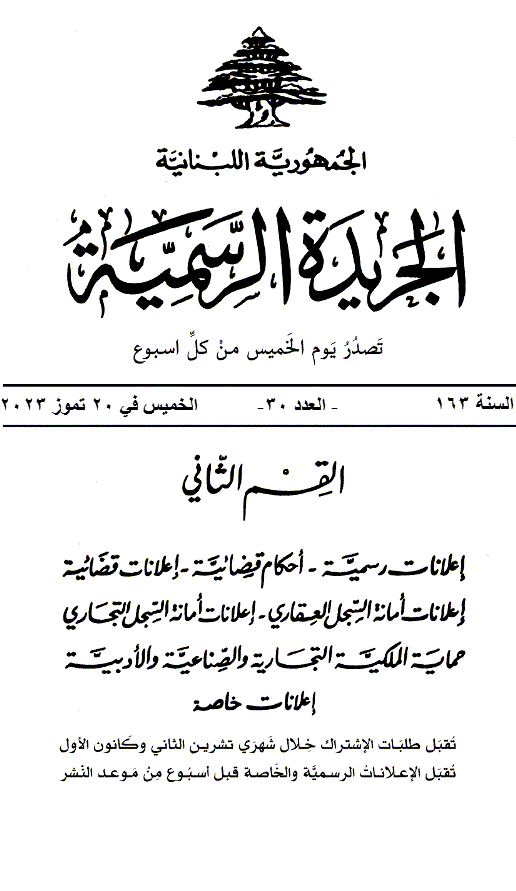 الجمهورية اللبنانية
الجريدة الرسمية
تصدُرُ يَوم الخَميس منْ كلِّ اسبوع
السنة ١٦٣ - العدد ٣٠- الخميس في ٢٠ تموز ٢٠٢٣
القِسْم الثّاني
إعلانات رسميَّة - أحكام قضائيَّة - إعلانات قضائية
إعلانات أمانة السِّجل العقاري - إعلانات أمانة السِّجل التجاري
حماية الملكيَّة التجارية والصِّناعيَّة والأدبيَّة
إعلانات خاصة
تُقبَل طلبَات الإشتراك خِلال شَهرَي تشرين الثاني وكَانون الأول
تُقبَل الإعلاناتُ الرسميَّة والخَاصة قبل أسبُوع مِنْ مَوعد النَشر